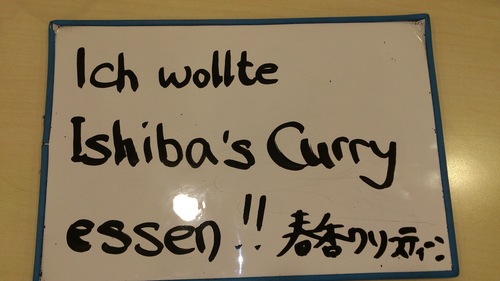 Ich wollte
Ishiba's Curry
essen!!春香クリスティーン